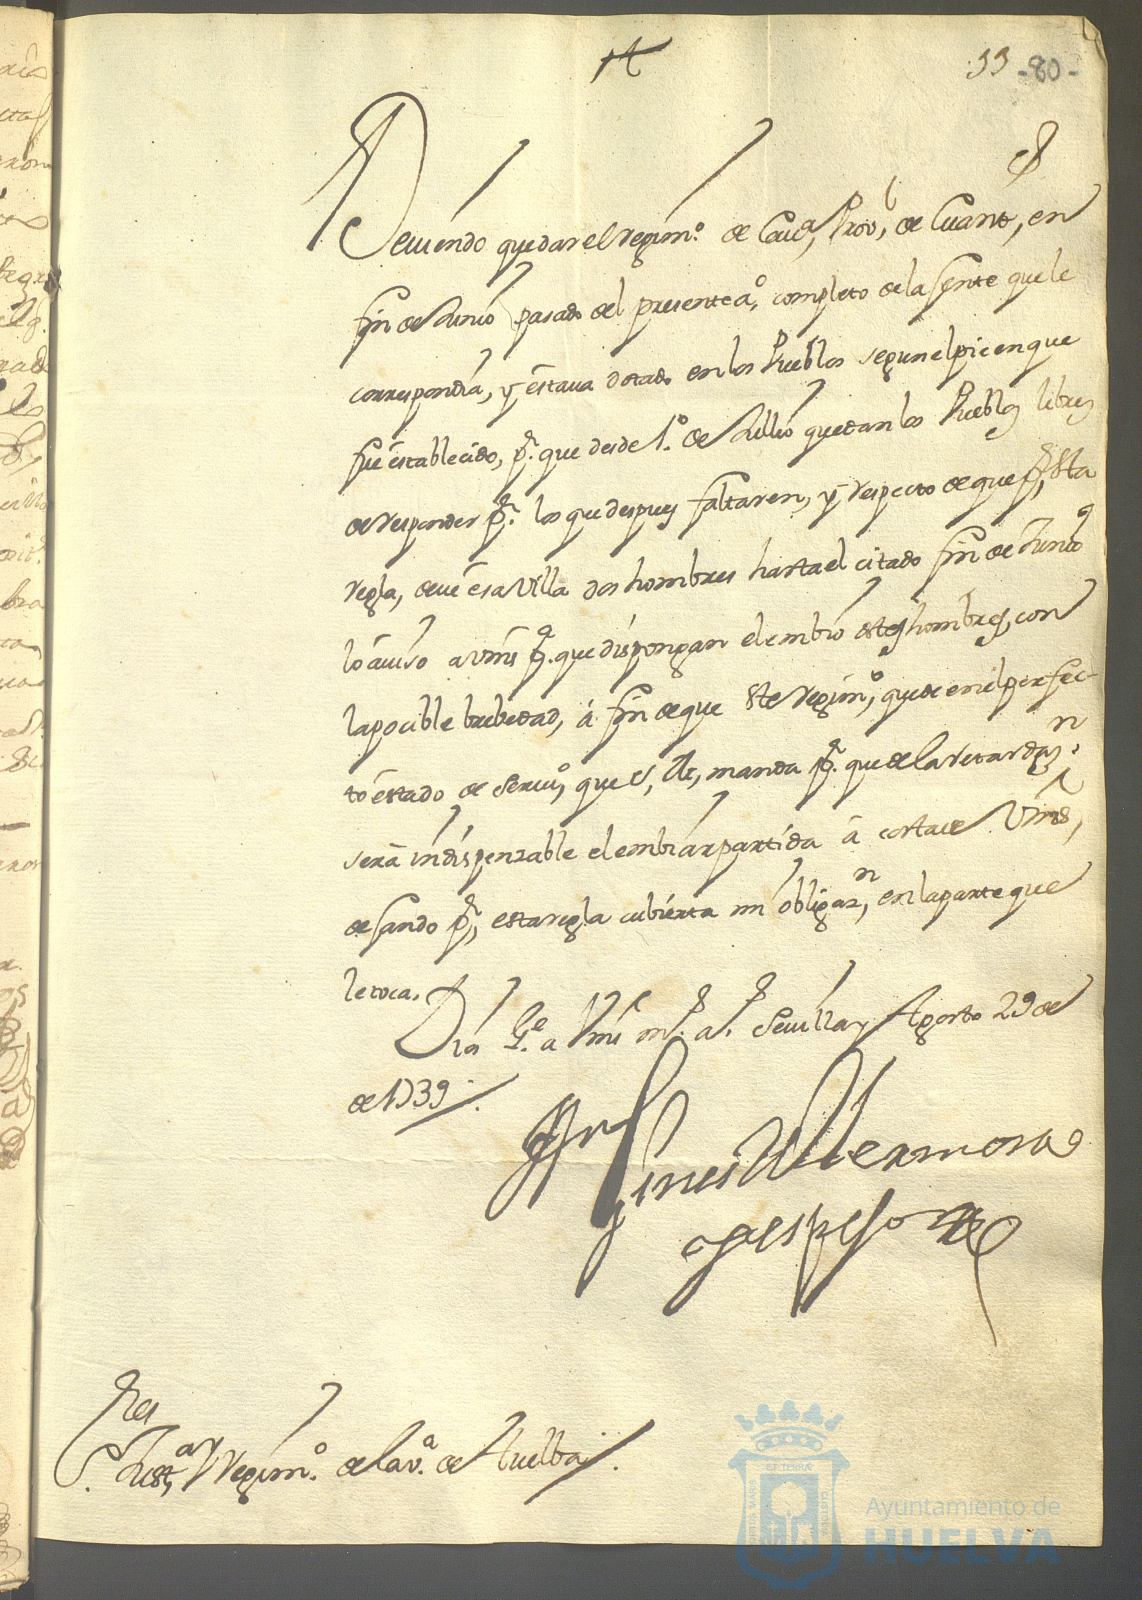 33 -80-
Deuiendo quedar el regim.º de Cau.ª Prov.l de Cuant.s, en
fin de Junio pasado del presente a.º, completo de la gente que le
correspondia, y estaua dotado en los Pueblos segun el pie en que
fue establecido, p.ª que desde 1.º de Jullio quedan los Pueblos libres
de responder p.r los que despues faltaren, y respecto de que p.r esta
regla, deue esa Villa dos hombres hasta el citado fin de Junio
lo auiso a Vms p.ª que dispongan el embio destos hombres, con
la pocible brebedad, á fin de que este regim.º, quede en el perfec-
to estado de Seru.º, que S. M., manda p.r que de la retardaz.n
será indispenzable el embiar partida á costa de Vms,
desando p.r esta regla cubierta mi obligaz.n, en la parte que
le toca.
Dios G.e a Vms m.s a.s Seuilla y Agosto 29 de
de 1739.
Gines de Hermosa
y espejo
S.res
Just.ª y regim.º de la v.ª de Huelba.
Ayuntamiento de
HUELVA